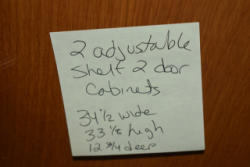 2 adjustable
shelf 2 door
Cabinets
34 1/2 wide
33 1/8 high
12 3/4 deep